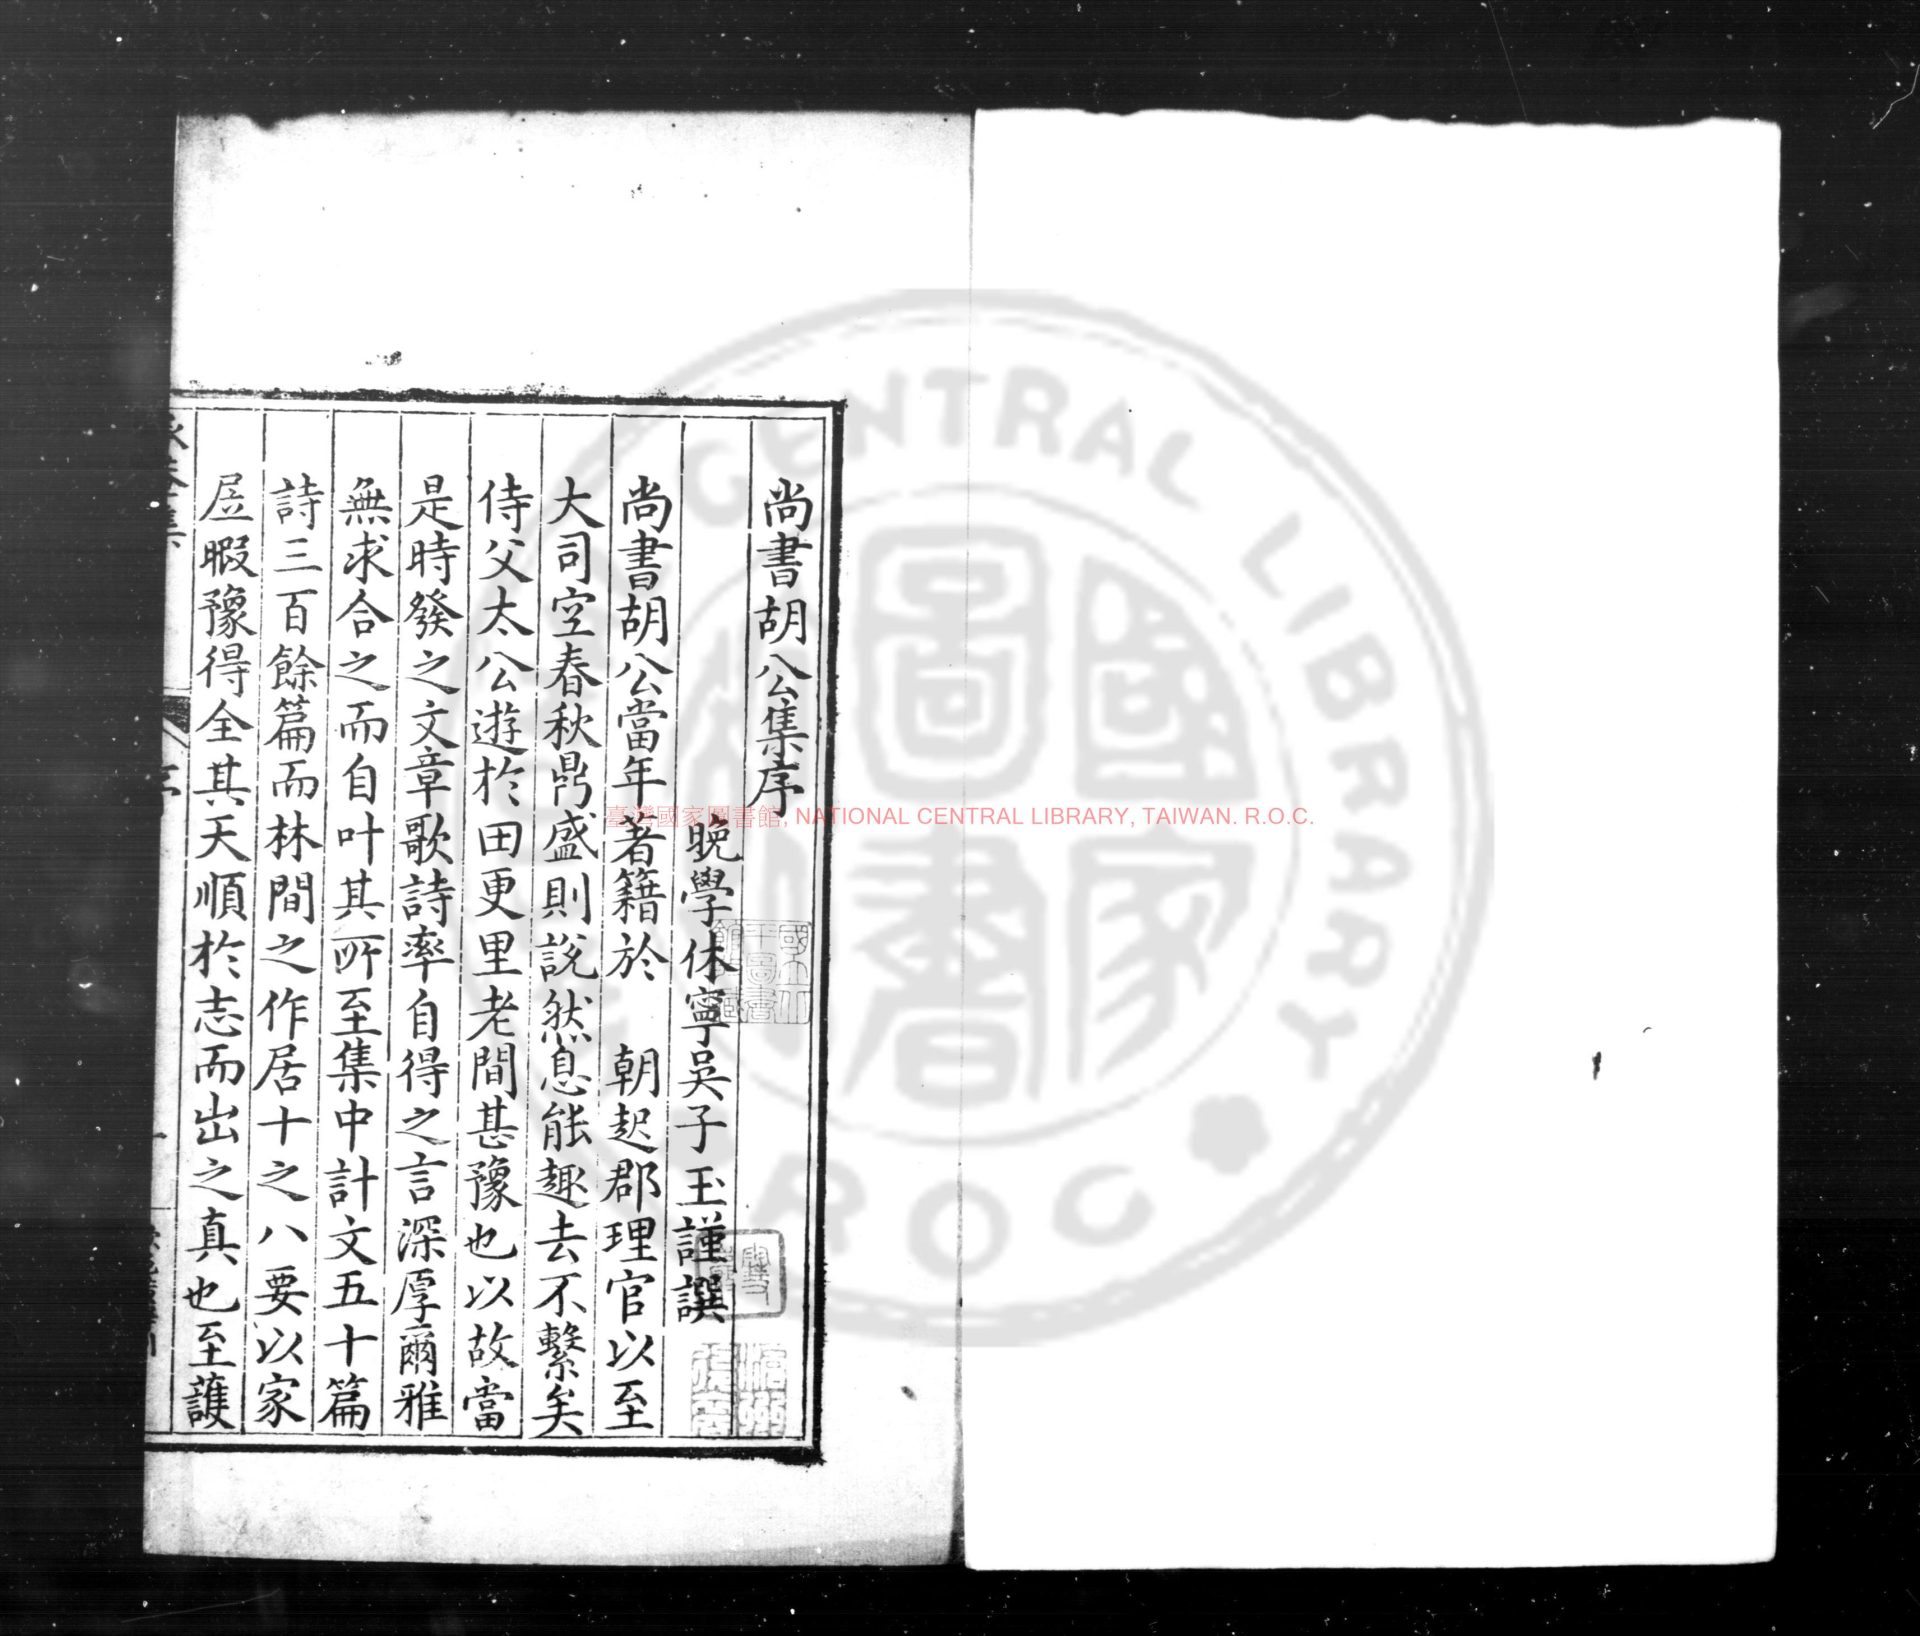 尚書胡公集序
晚學休寧吳子玉謹撰
尚書胡公當年著籍於　朝起郡理官以至
大司空春秋鼎盛則說然息能趣去不繫矣
侍父太公遊於田更里老間甚豫也以故當
是時發之文章歌詩率自得之言深厚爾雅
無求合之而自叶其所至集中計文五十篇
詩三百餘篇而林間之作居十之八要以家
凥暇豫得全其天順於志而出之真也至護
臺灣國家圖書館, NATIONAL CENTRAL LIBRARY, TAIWAN. R.O.C.
CENTRAL LIBRARY
R.O.C
國家圖書